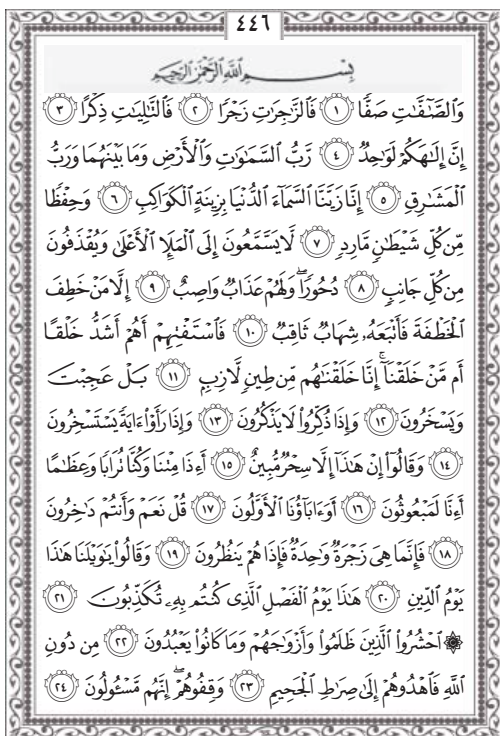 ٤٤٦
بِسْمِ اللَّهِ الرَّحْمَٰنِ الرَّحِيمِ
وَالصَّٰٓفَّٰتِ صَفًّا ١ فَالزَّٰجِرَٰتِ زَجْرًا ٢ فَالتَّٰلِيَٰتِ ذِكْرًا ٣
إِنَّ إِلَٰهَكُمْ لَوَٰحِدٌ ٤ رَّبُّ السَّمَٰوَٰتِ وَالْأَرْضِ وَمَا بَيْنَهُمَا وَرَبُّ
الْمَشَٰرِقِ ٥ إِنَّا زَيَّنَّا السَّمَآءَ الدُّنْيَا بِزِينَةٍ الْكَوَاكِبِ ٦ وَحِفْظًا
مِّن كُلِّ شَيْطَٰنٍ مَّارِدٍ ٧ لَّا يَسَّمَّعُونَ إِلَى الْمَلَإِ الْأَعْلَىٰ وَيُقْذَفُونَ
مِن كُلِّ جَانِبٍ ٨ دُحُورًا ۖ وَلَهُمْ عَذَابٌ وَاصِبٌ ٩ إِلَّا مَنْ خَطِفَ
الْخَطْفَةَ فَأَتْبَعَهُۥ شِهَابٌ ثَاقِبٌ ١٠ فَاسْتَفْتِهِمْ أَهُمْ أَشَدُّ خَلْقًا
أَم مَّنْ خَلَقْنَآ ۚ إِنَّا خَلَقْنَٰهُم مِّن طِينٍ لَّازِبٍ ١١ بَلْ عَجِبْتَ
وَيَسْخَرُونَ ١٢ وَإِذَا ذُكِّرُوا۟ لَا يَذْكُرُونَ ١٣ وَإِذَا رَأَوْا۟ ءَايَةً يَسْتَسْخِرُونَ
١٤ وَقَالُوٓا۟ إِنْ هَٰذَآ إِلَّا سِحْرٌ مُّبِينٌ ١٥ أَءِذَا مِتْنَا وَكُنَّا تُرَابًا وَعِظَٰمًا
أَءِنَّا لَمَبْعُوثُونَ ١٦ أَوَءَابَآؤُنَا الْأَوَّلُونَ ١٧ قُلْ نَعَمْ وَأَنتُمْ دَٰخِرُونَ
١٨ فَإِنَّمَا هِىَ زَجْرَةٌ وَٰحِدَةٌ فَإِذَا هُمْ يَنظُرُونَ ١٩ وَقَالُوا۟ يَٰوَيْلَنَا هَٰذَا
يَوْمُ الدِّينِ ٢٠ هَٰذَا يَوْمُ الْفَصْلِ الَّذِى كُنتُم بِهِۦ تُكَذِّبُونَ ٢١
۞ احْشُرُوا۟ الَّذِينَ ظَلَمُوا۟ وَأَزْوَٰجَهُمْ وَمَا كَانُوا۟ يَعْبُدُونَ ٢٢ مِن دُونِ
اللَّهِ فَاهْدُوهُمْ إِلَىٰ صِرَٰطِ الْجَحِيمِ ٢٣ وَقِفُوهُمْ ۖ إِنَّهُم مَّسْـُٔولُونَ ٢٤